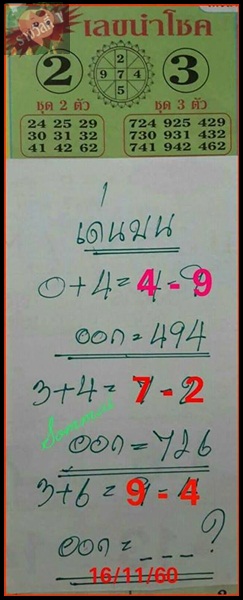 รวยวันนี้
เลขนำโชค
2 3
2
9 7 4
5
ชุด 2 ตัว ชุด 3 ตัว
24 25 29 724 925 429
30 31 32 730 931 432
41 42 62 741 942 462
เด่นบน
0+4= 4 - 9
ออก = 494
3+4= 7 - 2
Sommai
ออก = 726
3+6= 9 - 4
ออก = _ _ _ ?
16/11/60